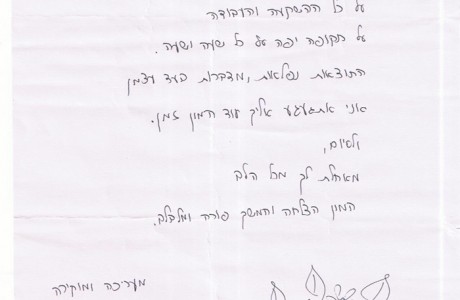 על כל ההשקעה והעבודה
על תקופה יפה על כל שעה ושעה.
התוצאות נפלאות, מדברות בעד עצמן
אני אתגעגע אליך עוד המון זמן.
ולסיום,
מאחלת לך מכל הלב
המון הצלחה והמשך פורה ומלבלב.
מעריכה ומוקירה